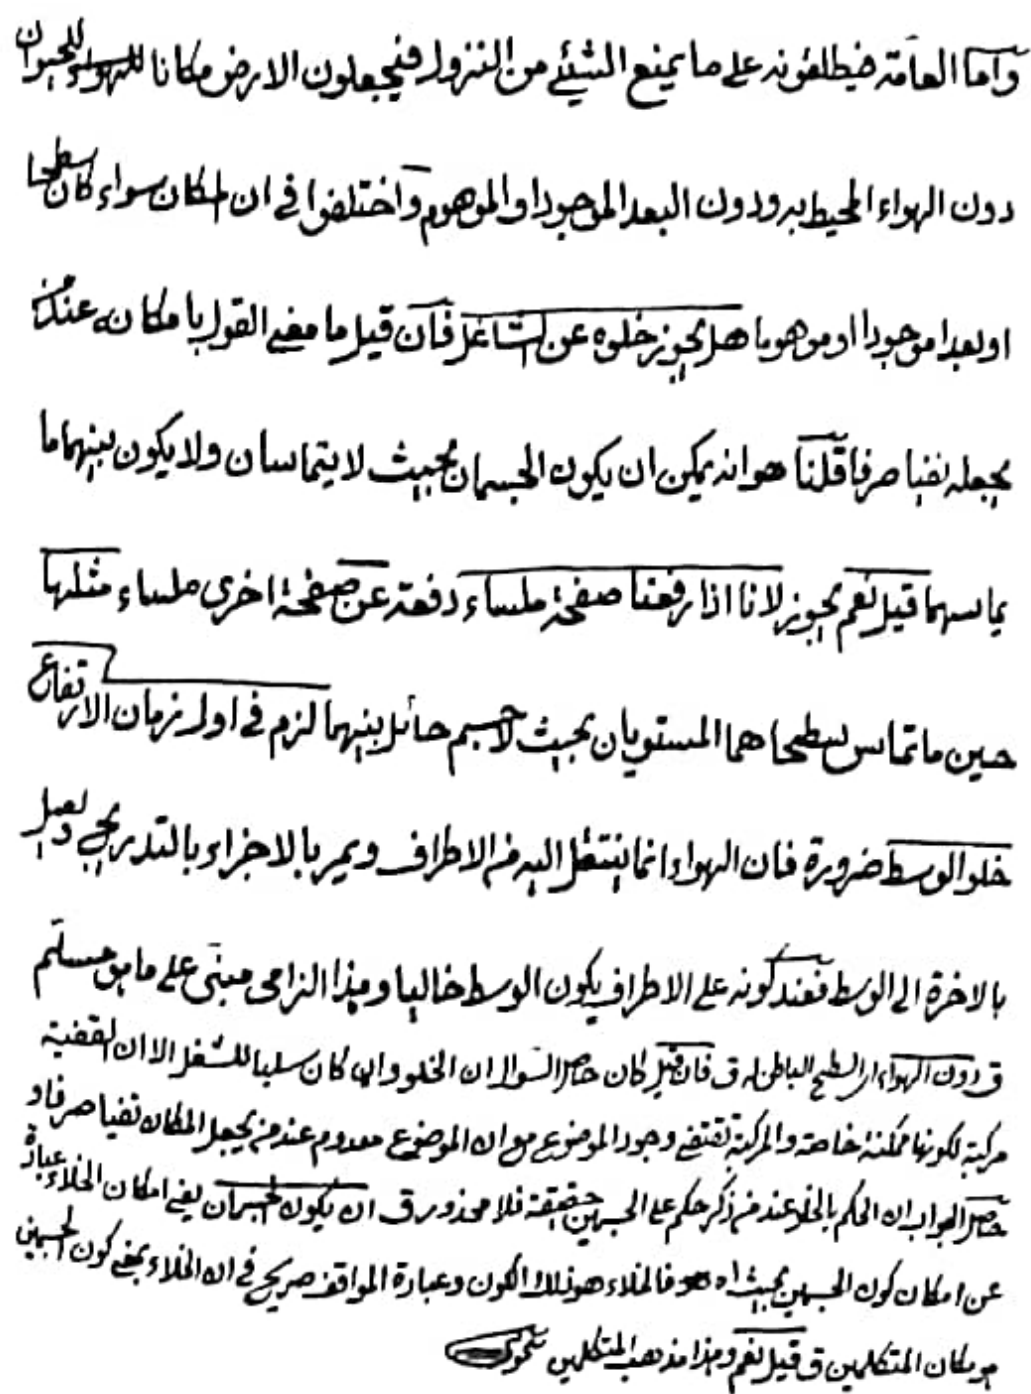 واما العامة فيطلقونه على ما يمنع الشيئ من النزول فيجعلون الارض مكانا للحيوان
دون الهواء المحيط به ودون البعد الموجود او الموهوم واختلفوا في ان المكان سواء كان سطحا
او بعدا موجودا او موهوما هل يجوز خلوه عن الشاغل فان قيل ما معنى القول بامكانه عند من
يجعله نفيا صرفا قلنا هو انه يمكن ان يكون الجسمان بحيث لا يتماسان ولا يكون بينهما ما
يماسهما قيل نعم يجوز لانا اذا رفعنا صفحة ملساء دفعة عن صفحة اخرى ملساء مثلها
حين ما تماس سطحاهما المستويان بحيث لا جسم حائل بينهما لزم في اول زمان الارتفاع
خلو الوسط ضرورة فان الهواء انما ينتقل اليه من الاطراف ويمر بالاجزاء بالتدريج ويصل
بالاخرة الى الوسط فعند كونه على الاطراف يكون الوسط خاليا وهذا الزامى مبنى على ما هو مسلم
ق دون الهواء اى السطح الباطن له ق فان قيل كان حاصل السوال ان الخلو وان كان سلبا للشغل الا ان القضية
مركبة لكونها ممكنة خاصة والمركبة تقتضى وجود الموضوع مع ان الموضوع معدوم عند من يجعل المكان نفيا صرفا و
حاصل الجواب ان الحكم بالخلو عند من ذكر حكم على الجسمين حقيقة فلا محذور ق ان يكون الجسمان يعنى امكان الخلاء عبارة
عن امكان كون الجسمين بحيث اه فالخلاء هو ذلك الكون وعبارة المواقف صريح في ان الخلاء بمعنى كون الجسمين
هو مكان المتكلمين ق قيل نعم وهذا مذهب المتكلمين